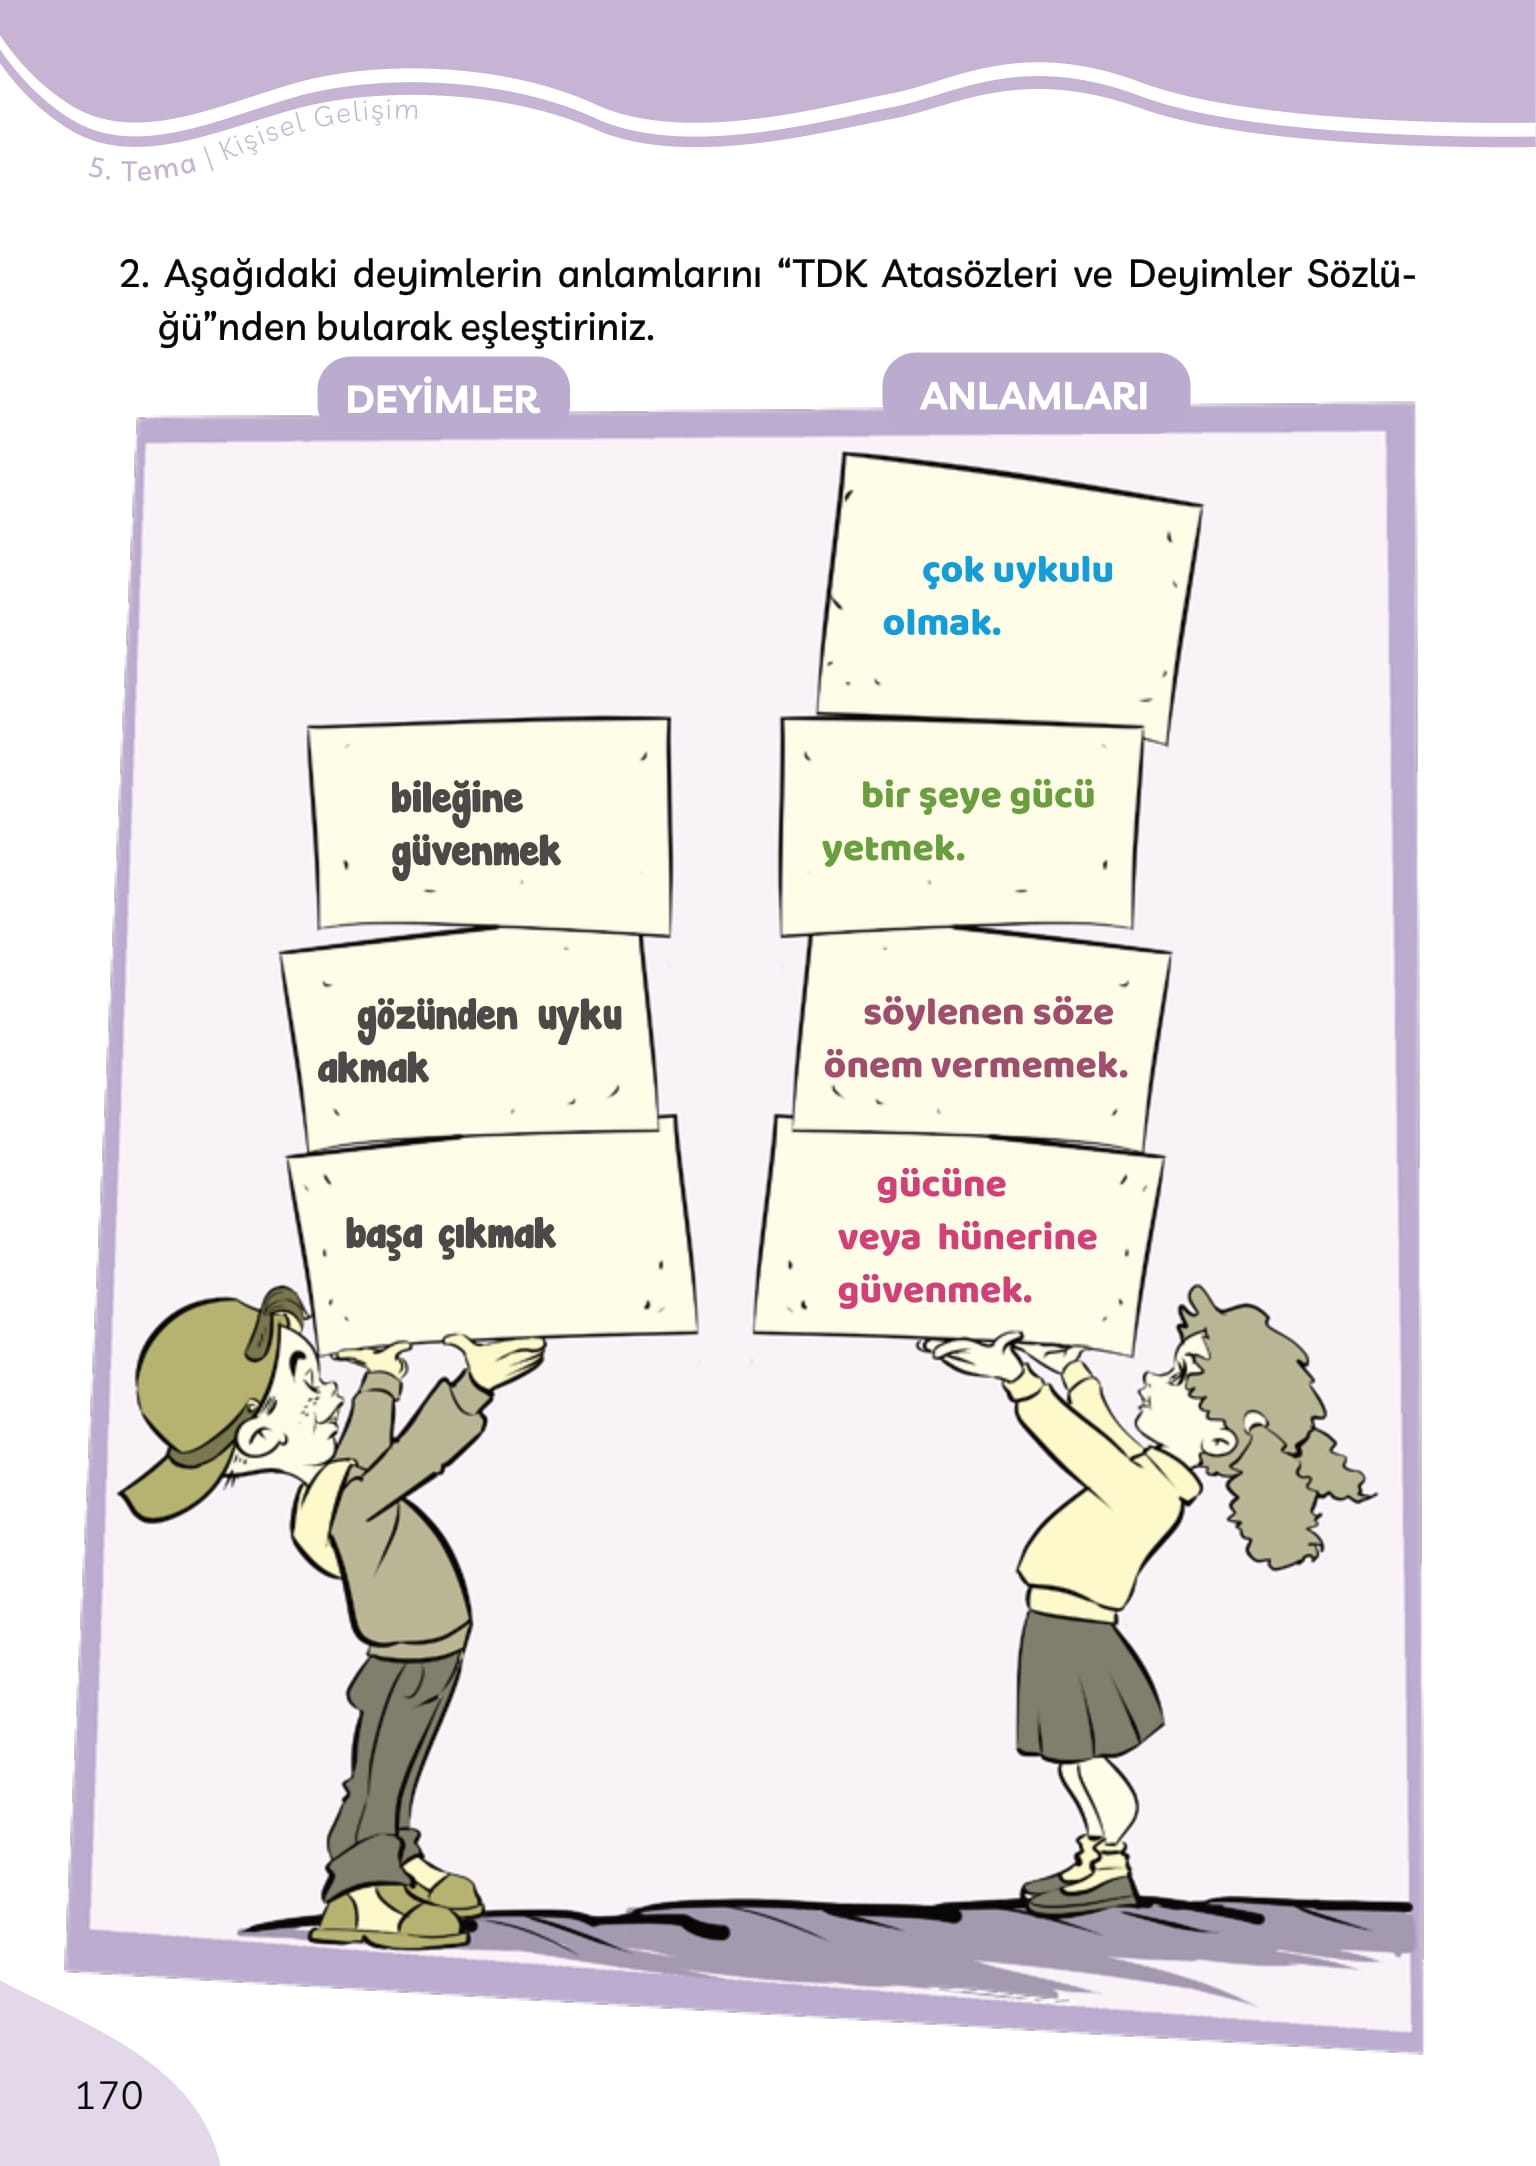 5. Tema | Kişisel Gelişim
2. Aşağıdaki deyimlerin anlamlarını “TDK Atasözleri ve Deyimler Sözlü-
ğü”nden bularak eşleştiriniz.
DEYİMLER
ANLAMLARI
çok uykulu
olmak.
bileğine
güvenmek
bir şeye gücü
yetmek.
gözünden uyku
akmak
söylenen söze
önem vermemek.
başa çıkmak
gücüne
veya hünerine
güvenmek.
170